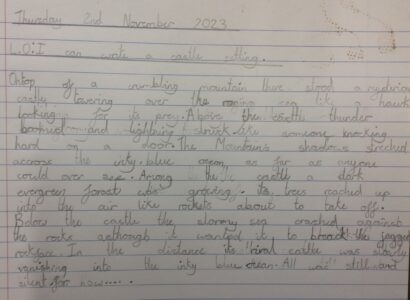 Thursday 2nd November 2023
L.O:I can write a castle setting.
Ontop of a crumbling mountain there stood a mysterious
castle towering over the roaring sea like a hawk
looking for its prey. Above the castle thunder
boomed and lightning struck like someone knocking
hard on a door. the Mountains shadows streched
accross the inky blue ocean as far as anyone
could ever see. Among the castle a dark
evergreen forest was growing its trees reached up
into the air like rockets about to take off.
Below the castle the stormy sea crashed against
the rocks although it wanted it to break the jagged
rockface. In the distance its rival castle was slowly
vanishing into the inky blue ocean. All was still and
silent for now.....